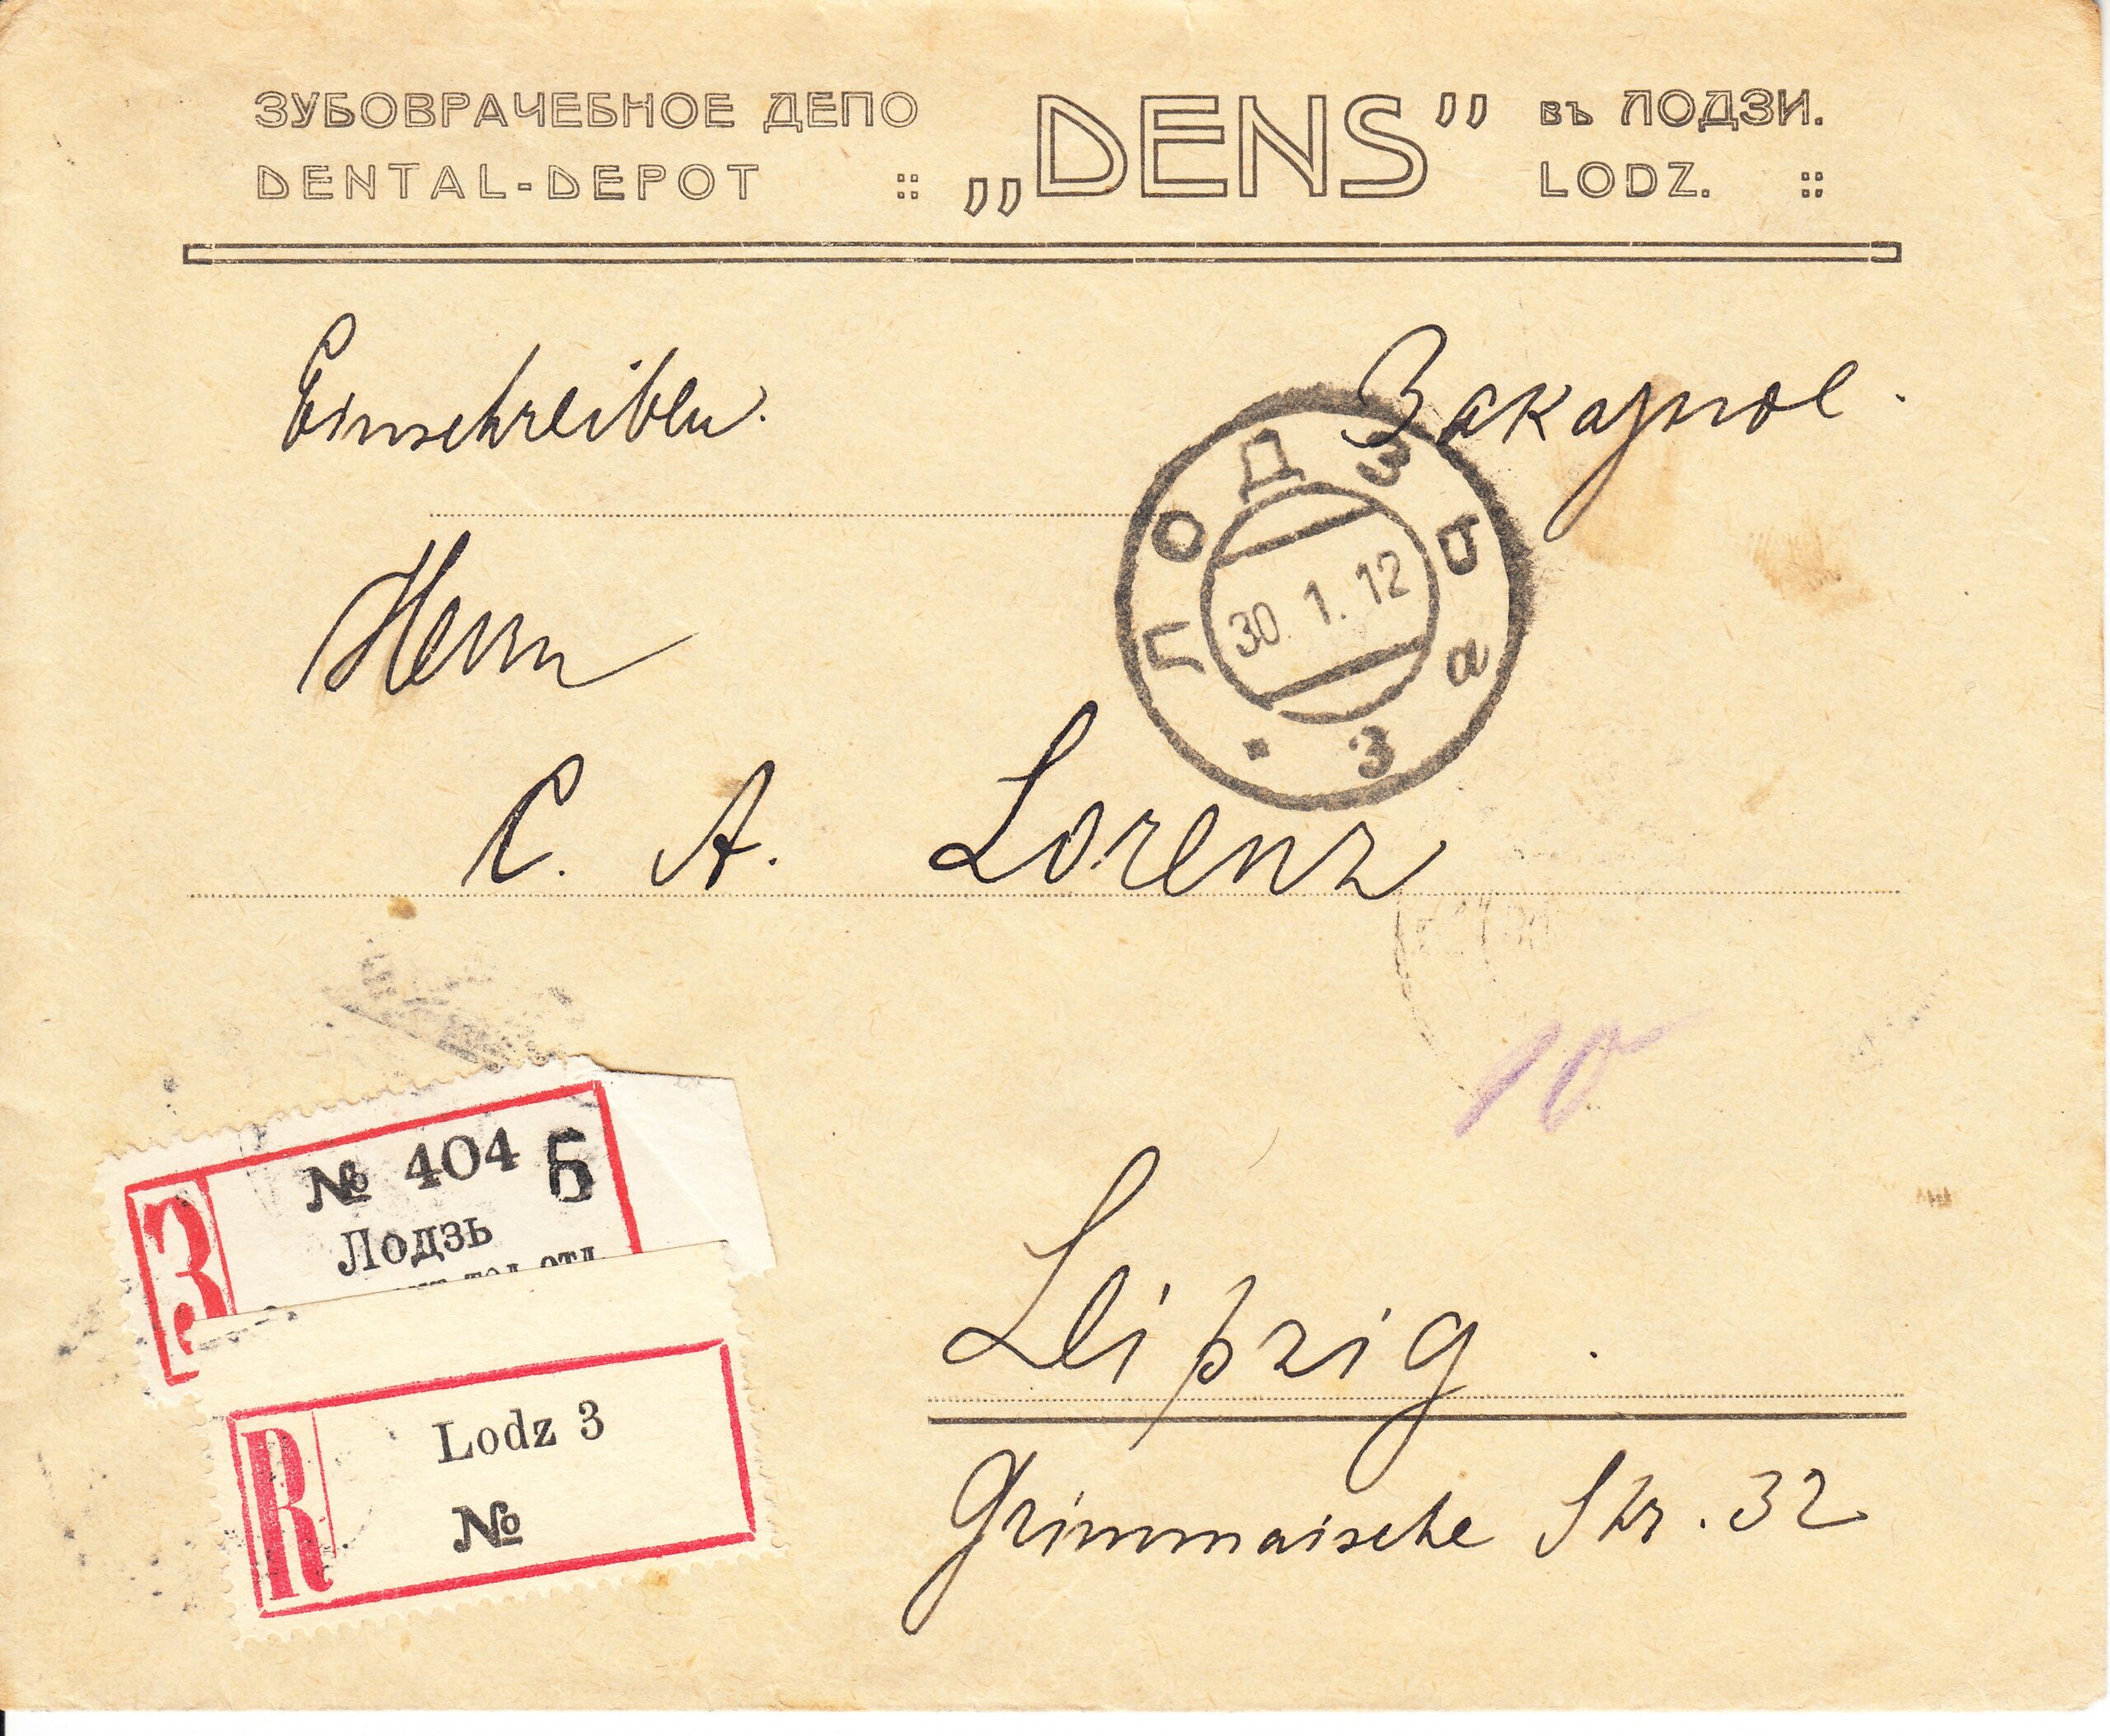 ЗУБОВРАЧЕБНОЕ ДЕПО „DENS” въ ЛОДЗИ.
DENTAL-DEPOT :: LODZ. ::
Einschreiben. Заказное.
ЛОДЗЬ а 3
30. 1. 12
Herrn
C. A. Lorenz
10
№ 404 Б
З Лодзь
отд
Leipzig.
R Lodz 3
№
Grimmaische Str. 32